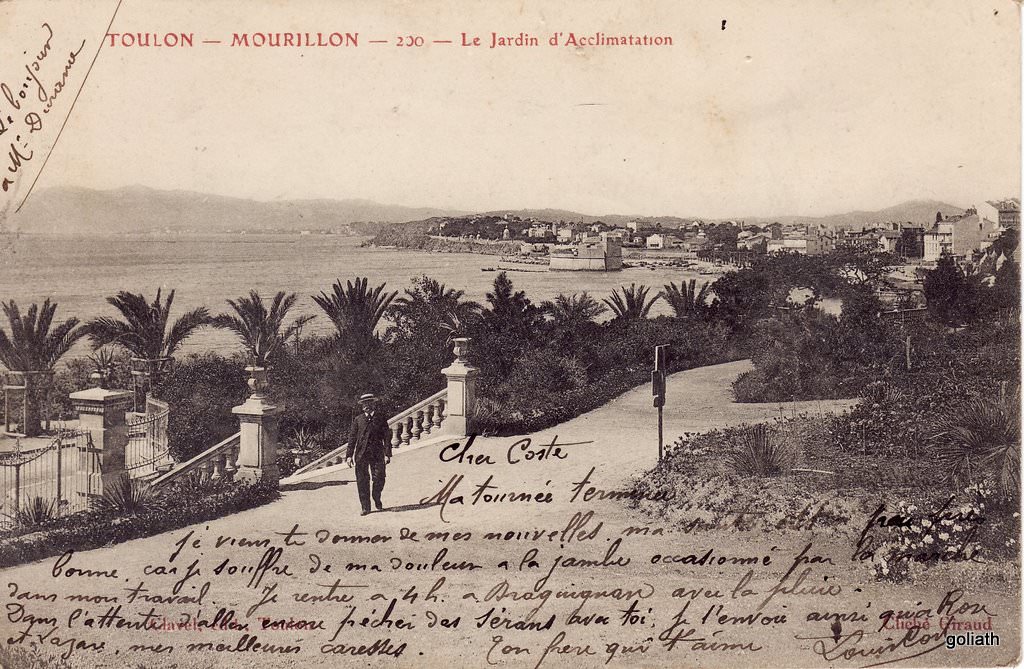 TOULON — MOURILLON — 200 — Le Jardin d'Acclimatation
Le bonjour
a Mr Durance
Cher Coste
Ma tournée terminée
je viens te donner de mes nouvelles, ma santé est pas très
bonne, car je souffre de ma douleur a la jambe occasionné par la marche
dans mon travail. Je rentre a 4h. a Draguignan avec la pluie.
Dans l'attente d'aller encore pêcher des sérans avec toi, je t'envoie ainsi qu'a
et Lazare, mes meilleures caresses. Ton frère qui t'aime
Louis
Clavel, Toulon
Cliché Giraud
goliath